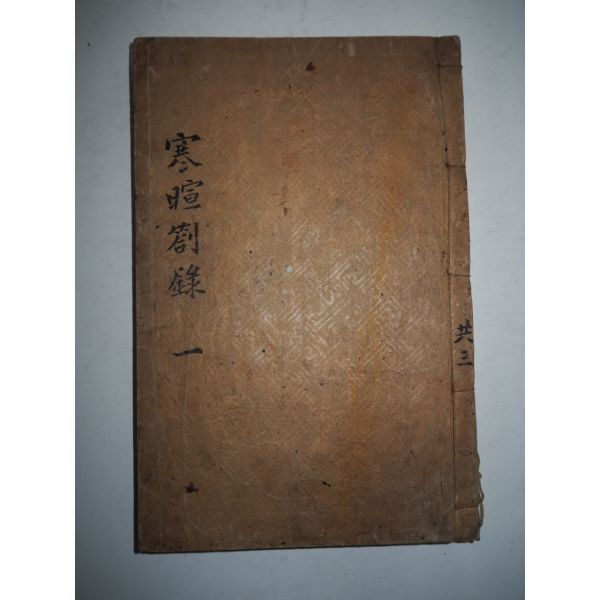 寒暄劄錄 一
共三